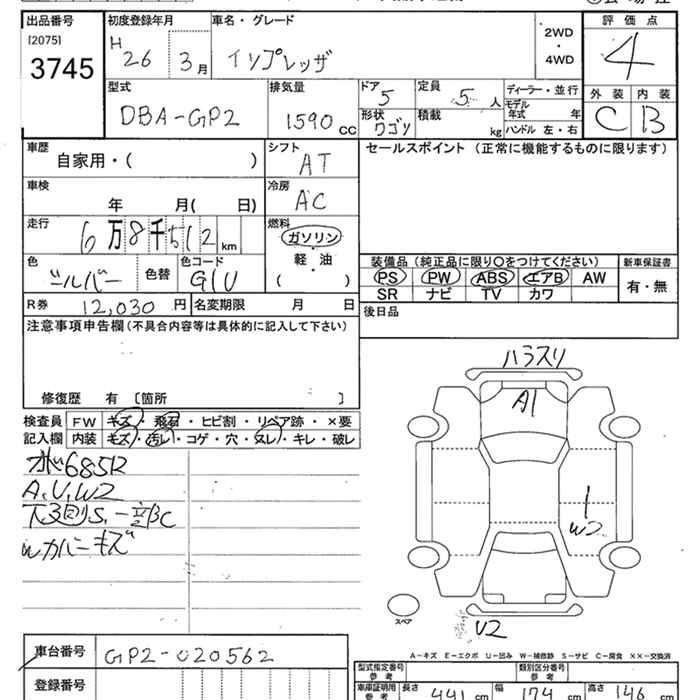 出品番号 初度登録年月 車名・グレード 評価点
[2075] H 26 3月 インプレッサ 2WD・4WD 4
3745
型式 排気量 ドア 定員 ディーラー・並行 外装 内装
DBA-GP2 1590 CC 5 5人 モデル年式 年 C B
形状 ワゴン 積載 kg ハンドル 左・右
車歴 シフト セールスポイント (正常に機能するものに限ります)
自家用・( ) AT
車検 冷房
年 月( 日) AC
走行 燃料
6万8千512km ガソリン
・軽油
色 色コード 装備品 (純正品に限り○をつけてください) 新車保証書
シルバー 色替 G1U ( ) PS PW ABS エアB AW 有・無
SR ナビ TV カワ
R券 12,030円 名変期限 月 日 後日品
注意事項申告欄(不具合内容等は具体的に記入して下さい)
ハラスリ
A1
修復歴 有 [箇所 ]
検査員 FW キズ・飛石・ヒビ割・リペア跡・×要
記入欄 内装 キズ・汚レ・コゲ・穴・スレ・キレ・破レ
A、U、W2
下回りS、一部C
Wカバーキズ
W2
スペア
U2
A-キズ E-エクボ U-凹み W-補修跡 S-サビ C-腐食 XX-交換済
車台番号 GP2-020562 型式指定番号 参考 類別区分番号 参考
登録番号 車庫証明用 参考 長さ 441cm 幅 174cm 高さ 146cm